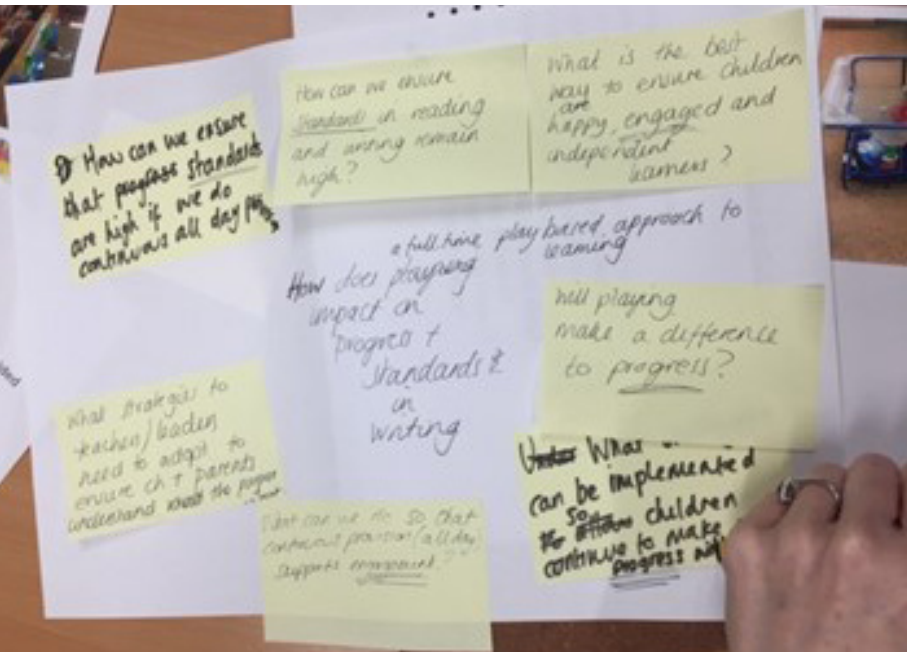 How can we ensure
that progress standards
are high if we do
continuous all day
How can we ensure
standards in reading
and writing remain
high?
What is the best
way to ensure children
are
happy, engaged and
independent
learners?
a full time play based approach to
learning
How does playing
impact on
progress +
standards
in
writing
Will playing
make a difference
to progress?
What strategies to
teachers/leaders
need to adopt to
ensure ch + parents
understand the
What can we do so that
continuous provision (all day)
supports
What
can be implemented
so
children
continue to make
progress